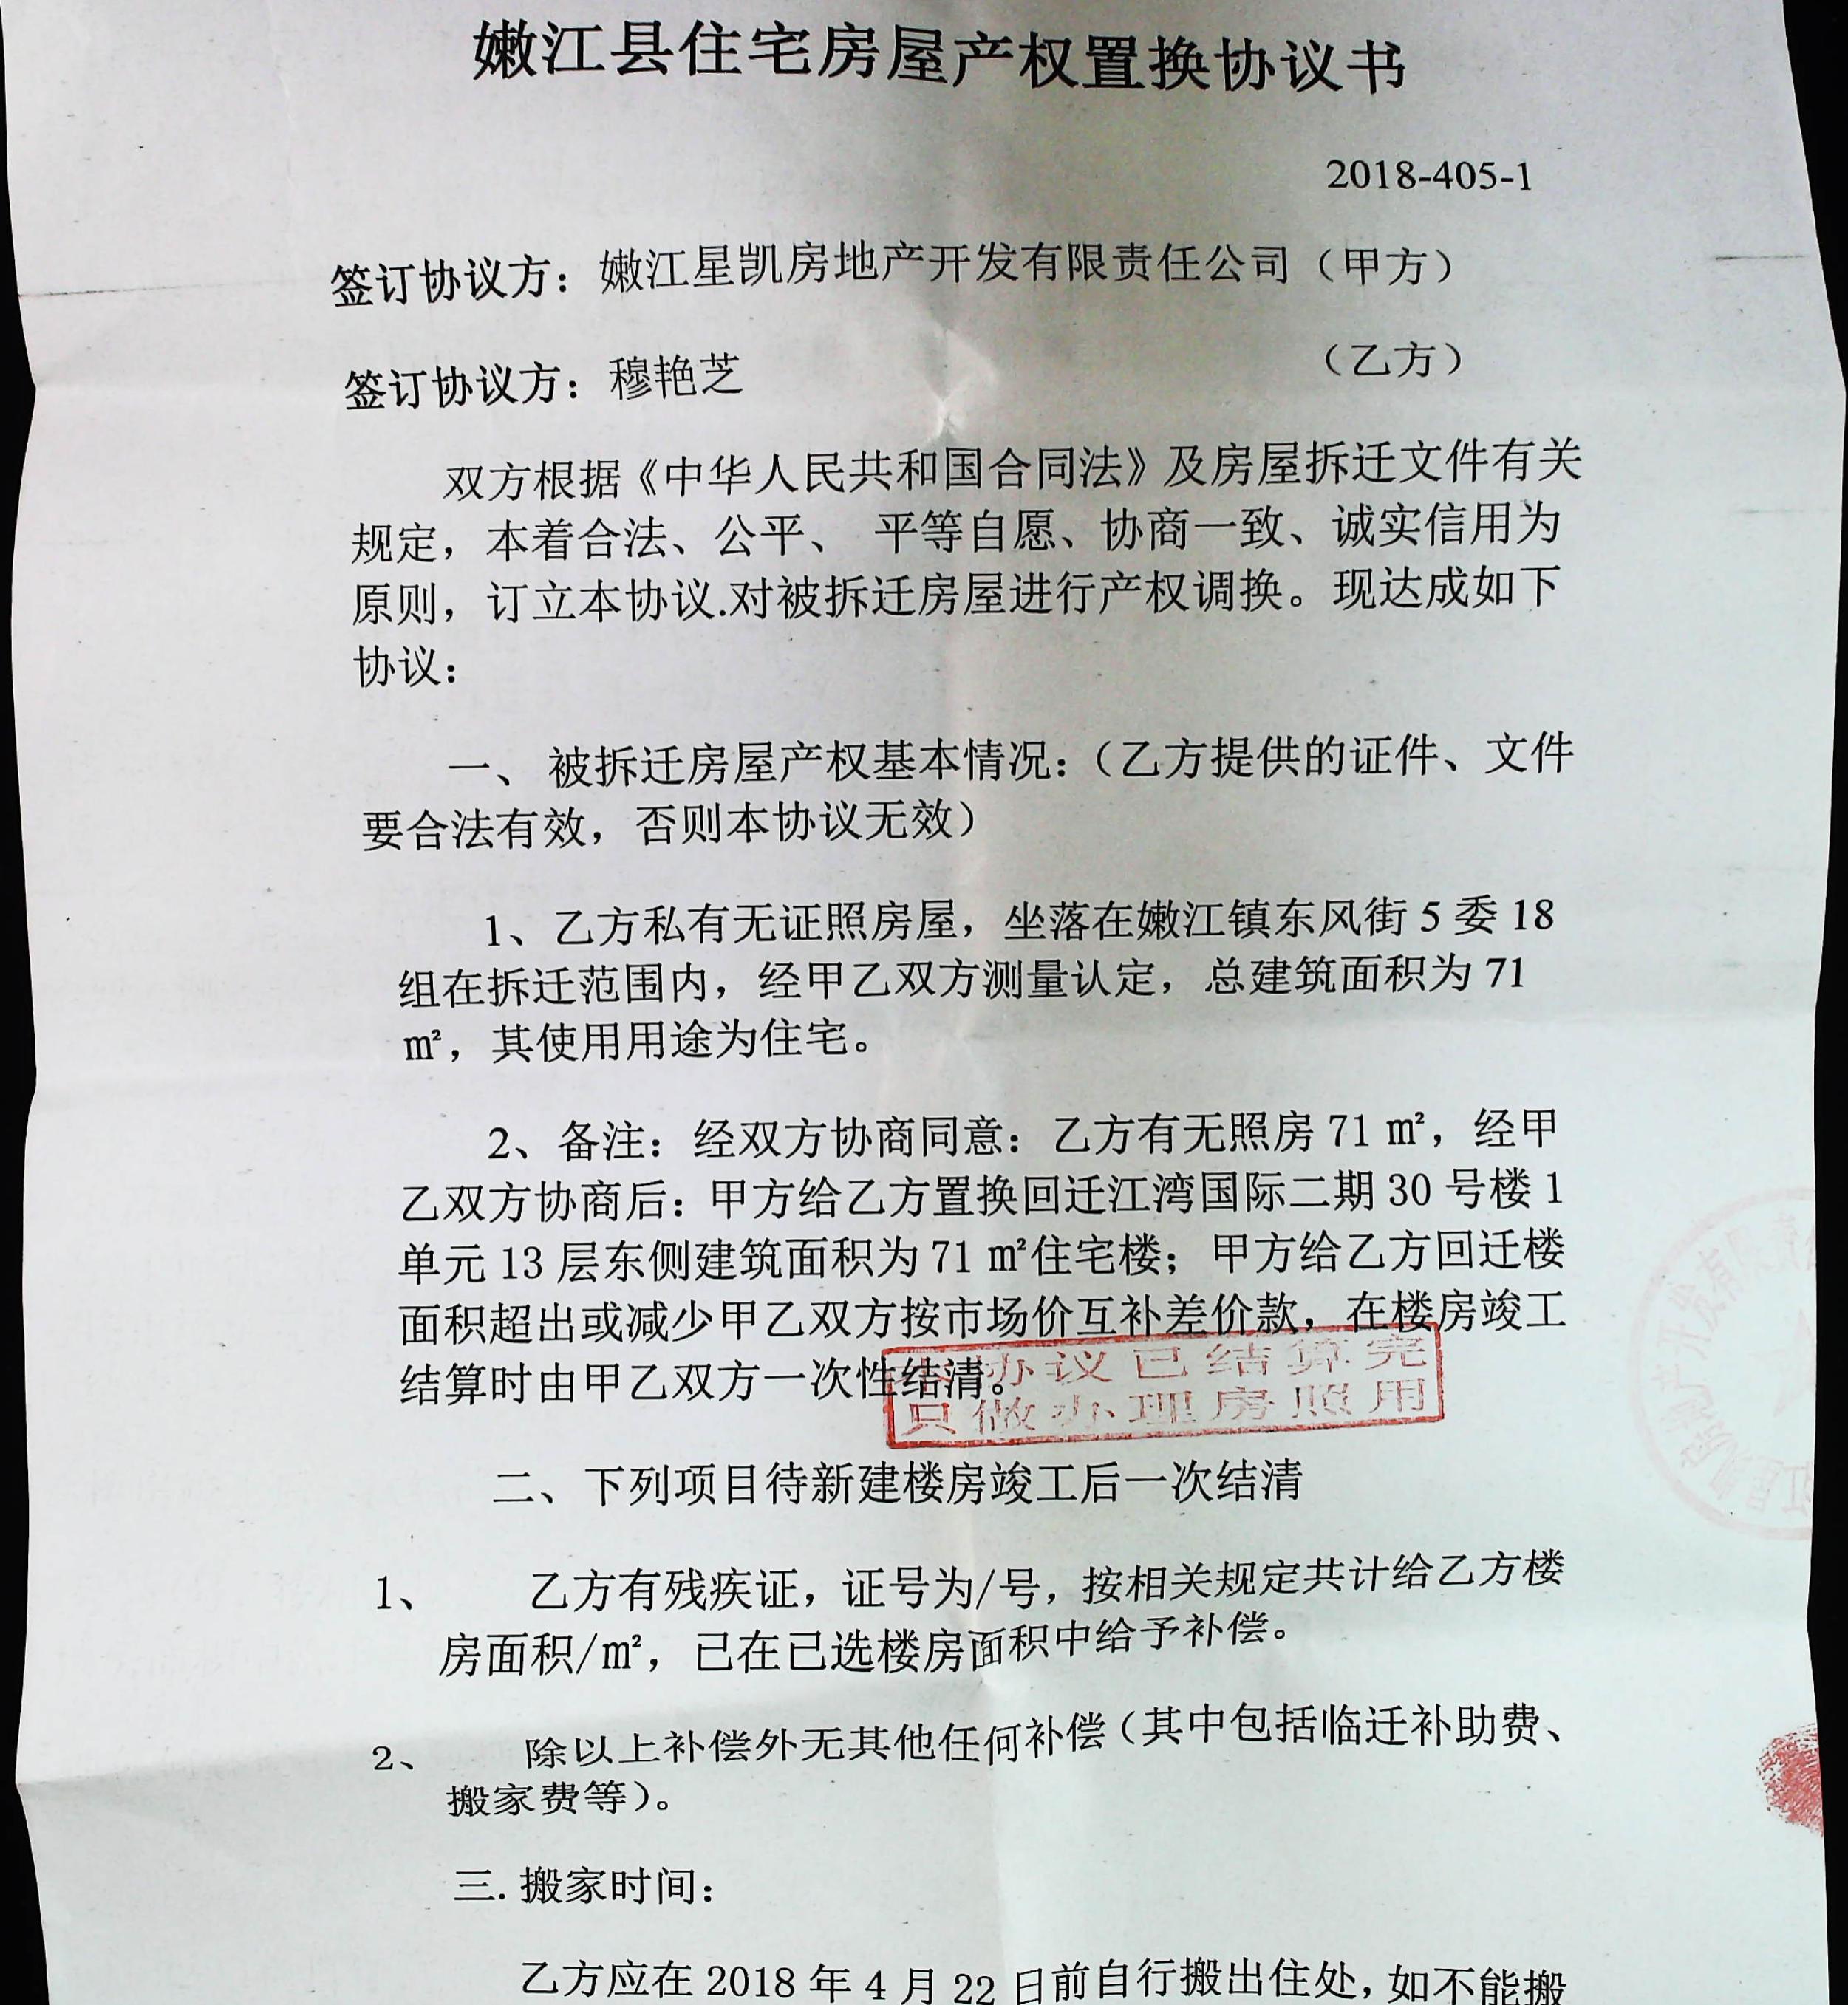 嫩江县住宅房屋产权置换协议书
2018-405-1
签订协议方：嫩江星凯房地产开发有限责任公司（甲方）
签订协议方：穆艳芝 （乙方）
双方根据《中华人民共和国合同法》及房屋拆迁文件有关
规定，本着合法、公平、 平等自愿、协商一致、诚实信用为
原则，订立本协议.对被拆迁房屋进行产权调换。现达成如下
协议：
一、 被拆迁房屋产权基本情况：（乙方提供的证件、文件
要合法有效，否则本协议无效）
1、乙方私有无证照房屋，坐落在嫩江镇东风街 5 委 18
组在拆迁范围内，经甲乙双方测量认定，总建筑面积为 71
㎡，其使用用途为住宅。
2、备注：经双方协商同意：乙方有无照房 71 ㎡，经甲
乙双方协商后：甲方给乙方置换回迁江湾国际二期 30 号楼 1
单元 13 层东侧建筑面积为 71 ㎡住宅楼；甲方给乙方回迁楼
面积超出或减少甲乙双方按市场价互补差价款，在楼房竣工
结算时由甲乙双方一次性结清。
本协议已结算完
只做办理房照用
二、下列项目待新建楼房竣工后一次结清
1、 乙方有残疾证，证号为/号，按相关规定共计给乙方楼
房面积/㎡，已在已选楼房面积中给予补偿。
2、 除以上补偿外无其他任何补偿（其中包括临迁补助费、
搬家费等）。
三. 搬家时间：
乙方应在 2018 年 4 月 22 日前自行搬出住处，如不能搬